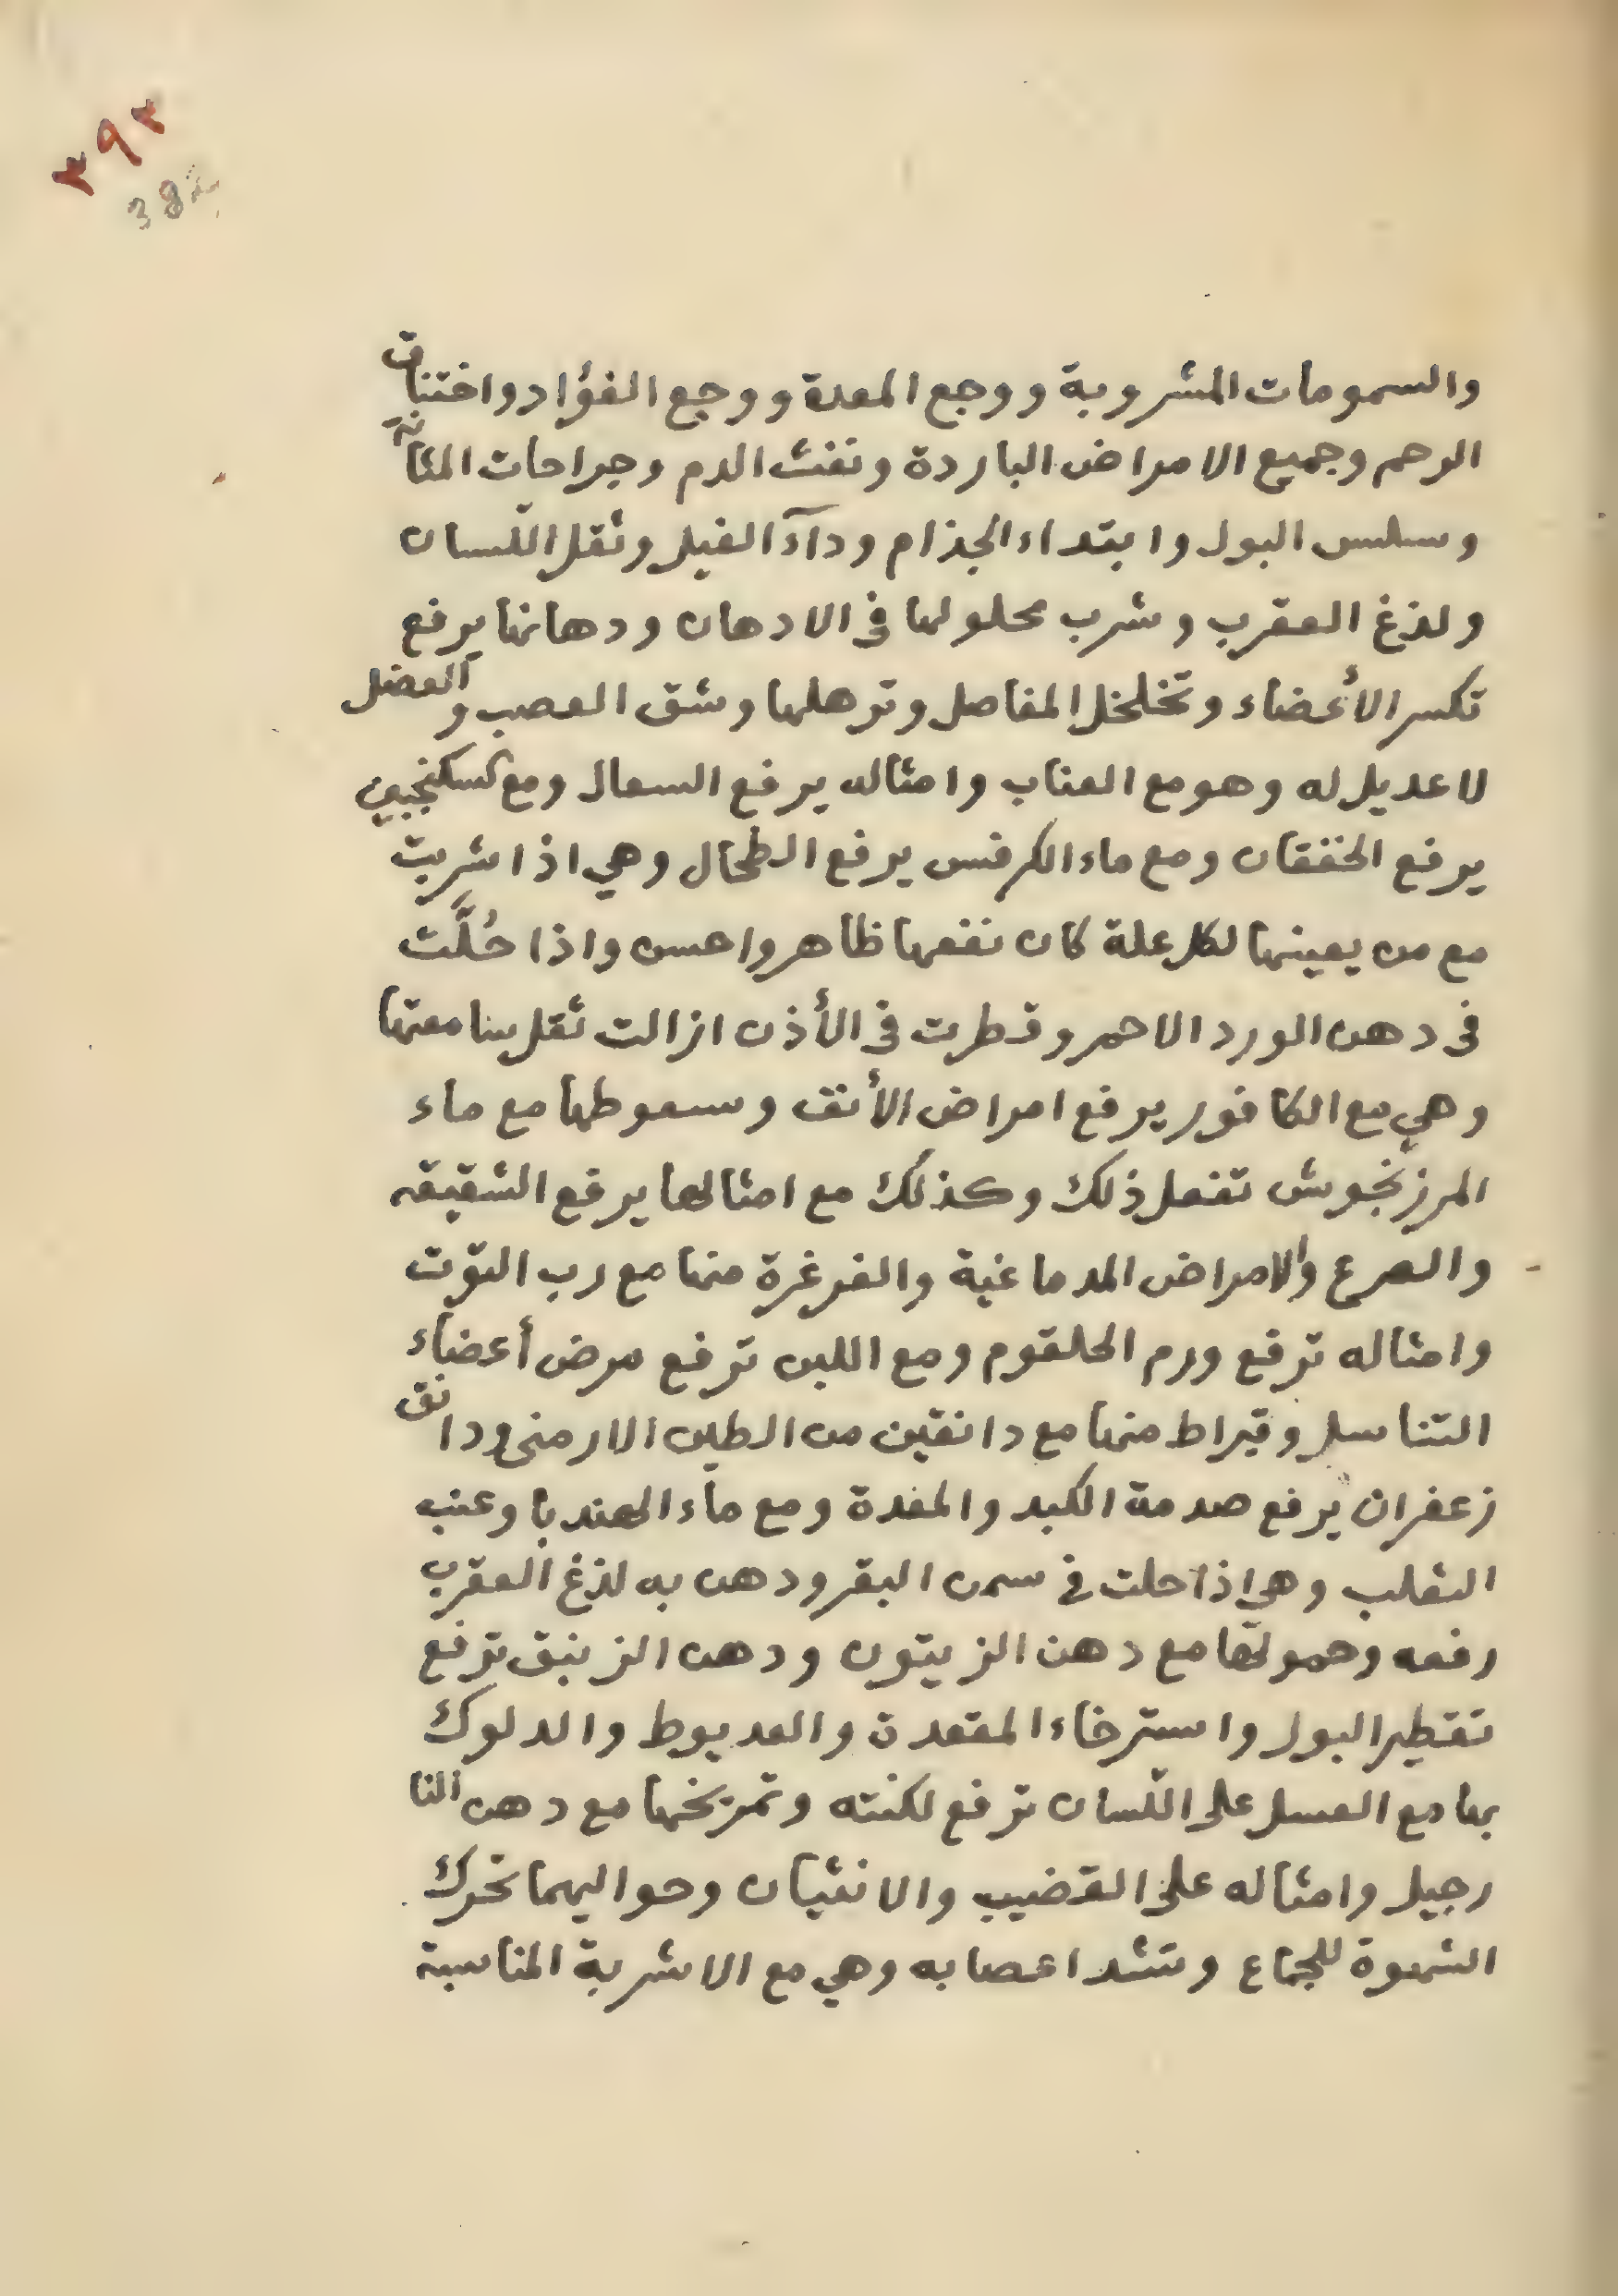 ٣٩٣
38
والسمومات المشروبة ووجع المعدة ووجع الفؤاد واختناق
الرحم وجميع الامراض الباردة ونفث الدم وجراحات المثانة
وسلس البول وابتداء الجذام ودآء الفيل وثقل اللّسان
ولذغ العقرب وشرب محلولها فى الادهان ودهانها يرفع
تكسر الأعضاء وتخلخل المفاصل وترهلها وشق العصب والعضل
لا عديل له وهو مع العناب وامثاله يرفع السعال ومع السكنجبين
يرفع الخفقان ومع ماء الكرفس يرفع الطحال وهي اذا شربت
مع من يعينها لكل علة كان نفعها ظاهر واحسن واذا حُلَّت
فى دهن الورد الاحمر وقطرت فى الأذن ازالت ثقل سامعتها
وهي مع الكافور يرفع امراض الأنف وسعوطها مع ماء
المرزنجوش تفعل ذلك وكذلك مع امثالها يرفع الشقيقه
والصرع والامراض الدماغية والغرغرة منها مع رب التوت
وامثاله ترفع ورم الحلقوم ومع اللبن ترفع مرض أعضاء
التناسل وقيراط منها مع دانقين من الطين الارمنى ودانق
زعفران يرفع صدمة الكبد والمغدة ومع ماء الهندبا وعنب
الثغلب وهي اذا حلت في سمن البقر ودهن به لذغ العقرب
رفعه وحمولها مع دهن الزيتون ودهن الزنبق ترفع
تقطير البول واسترخاء المقعدة والعديوط والدلوك
بها مع العسل على اللّسان ترفع لكنته وتمريخها مع دهن النا
رجيل وامثاله على القضيب والانثيان وحواليهما تحرك
الشهوة للجماع وتشد اعصابه وهي مع الاشربة المناسبة